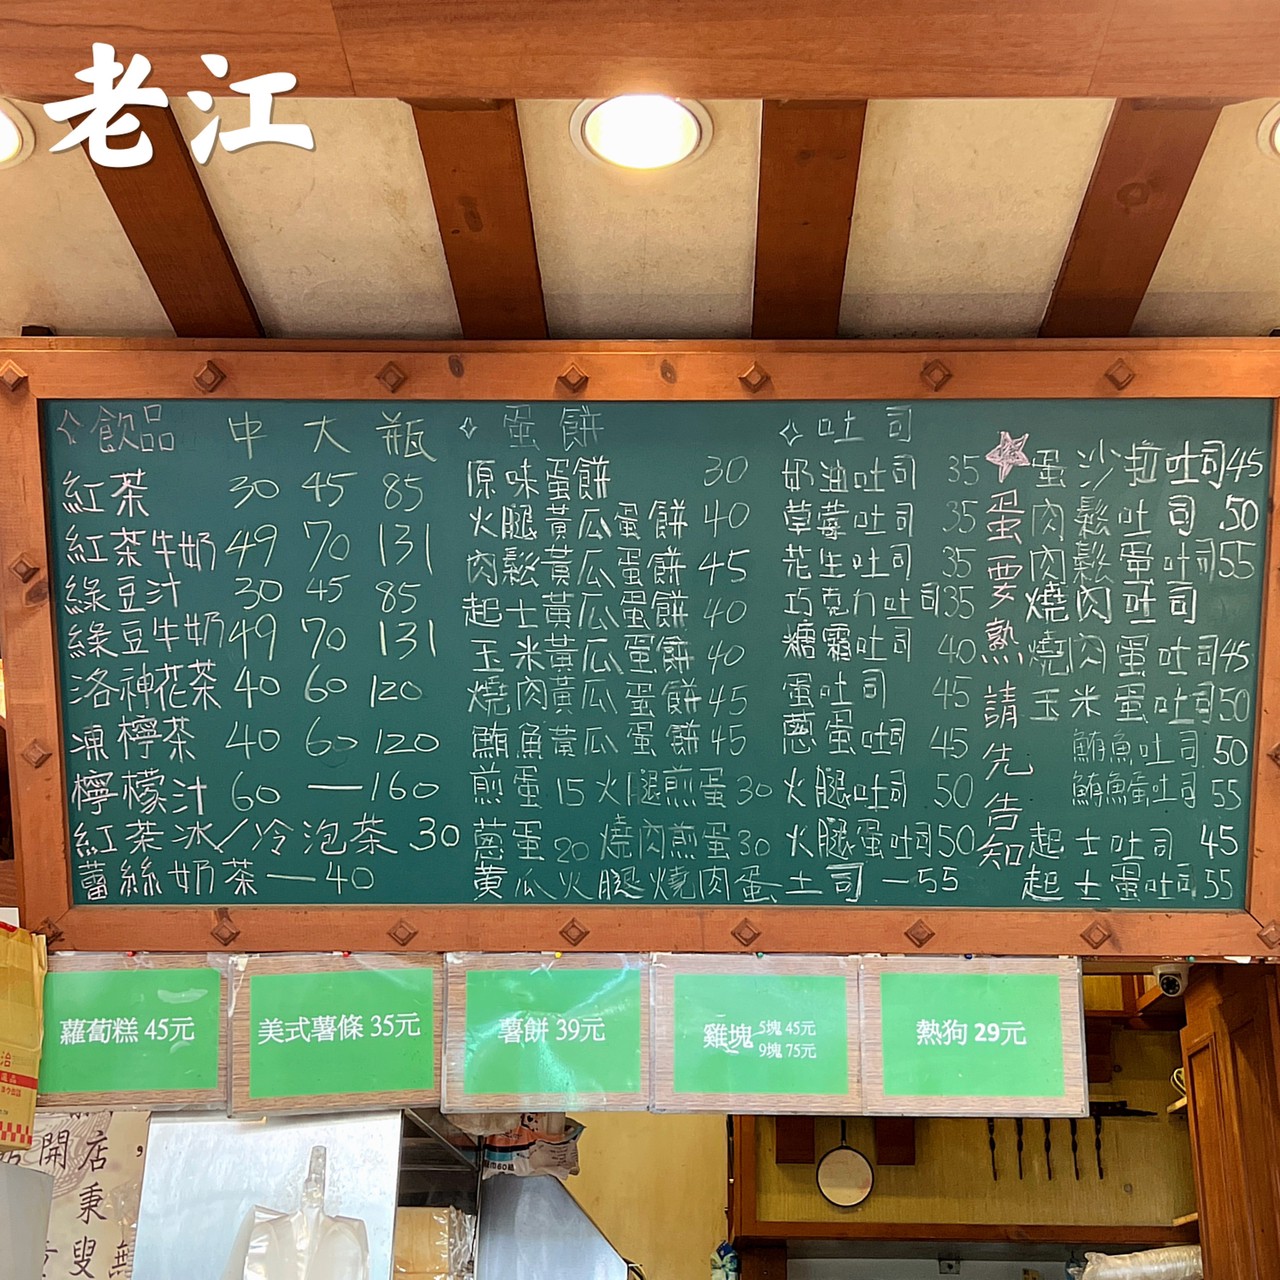 老江
飲品 中 大 瓶
紅茶 30 45 85
紅茶牛奶 49 70 131
綠豆汁 30 45 85
綠豆牛奶 49 70 131
洛神花茶 40 60 120
凍檸茶 40 60 120
檸檬汁 60 — 160
紅茶冰/冷泡茶 30
蕾絲奶茶—40
蛋餅
原味蛋餅 30
火腿黃瓜蛋餅 40
肉鬆黃瓜蛋餅 45
起士黃瓜蛋餅 40
玉米黃瓜蛋餅 40
燒肉黃瓜蛋餅 45
鮪魚黃瓜蛋餅 45
煎蛋 15 火腿煎蛋 30
蔥蛋 20 燒肉煎蛋 30
黃瓜火腿燒肉蛋土司 —55
吐司
奶油吐司 35
草莓吐司 35
花生吐司 35
巧克力吐司 35
糖霜吐司 40
蛋吐司 45
蔥蛋吐司 45
火腿吐司 50
火腿蛋吐司 50
蛋要熟請先告知
蛋沙拉吐司 45
肉鬆吐司 50
肉鬆蛋吐司 55
燒肉吐司
燒肉蛋吐司 45
玉米蛋吐司 50
鮪魚吐司 50
鮪魚蛋吐司 55
起士吐司 45
起士蛋吐司 55
蘿蔔糕 45元
美式薯條 35元
薯餅 39元
雞塊 5塊 45元
9塊 75元
熱狗 29元
開店,
秉
叟無